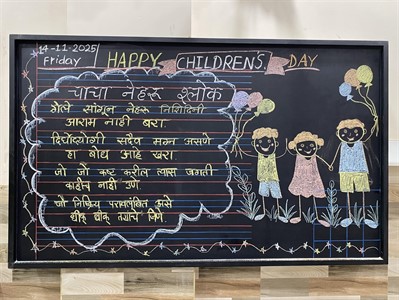 14-11-2025
Friday
HAPPY CHILDREN'S DAY
चाचा नेहरू श्लोक
गेले सांगून नेहरू निशिदिनी
आराम नाही बरा
सदैव मग्न असणे
हा बोध आहे खरा
जो जो कष्ट करील त्यास जगती
काहीच नाही उणे
जो निष्क्रिय परावलंबित असे
धीक् धीक् तयाचे जिणे